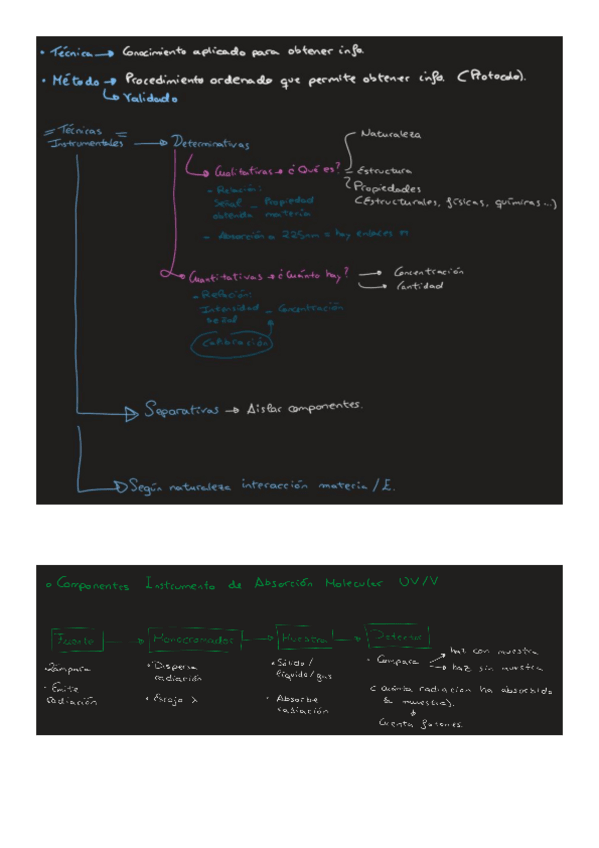 • Técnica → Conocimiento aplicado para obtener info.
• Método → Procedimiento ordenado que permite obtener info. (Protocolo).
↳ Validado
= Técnicas =
Instrumentales → Determinativas
Naturaleza
Cualitativas → ¿Qué es? - Estructura
Propiedades
(Estructurales, físicas, químicas...)
- Relación:
Señal - Propiedad
obtenida materia
- Absorción a 225nm = hay enlaces π
Cuantitativas → ¿Cuánto hay? → Concentración
→ Cantidad
- Relación:
Intensidad - Concentración
señal
Calibración
Separativas → Aislar componentes.
Según naturaleza interacción materia / E.
• Componentes Instrumento de Absorción Molecular UV/V
Fuente → Monocromador → Muestra → Detector
• Lámpara
• Emite
radiación
• Dispersa
radiación
• Escoje λ
• Sólido /
líquido / gas
• Absorbe
radiación
• Compara → haz con muestra
→ haz sin muestra
(Cuánta radiación ha absorbido
la muestra).
Cuenta fotones.